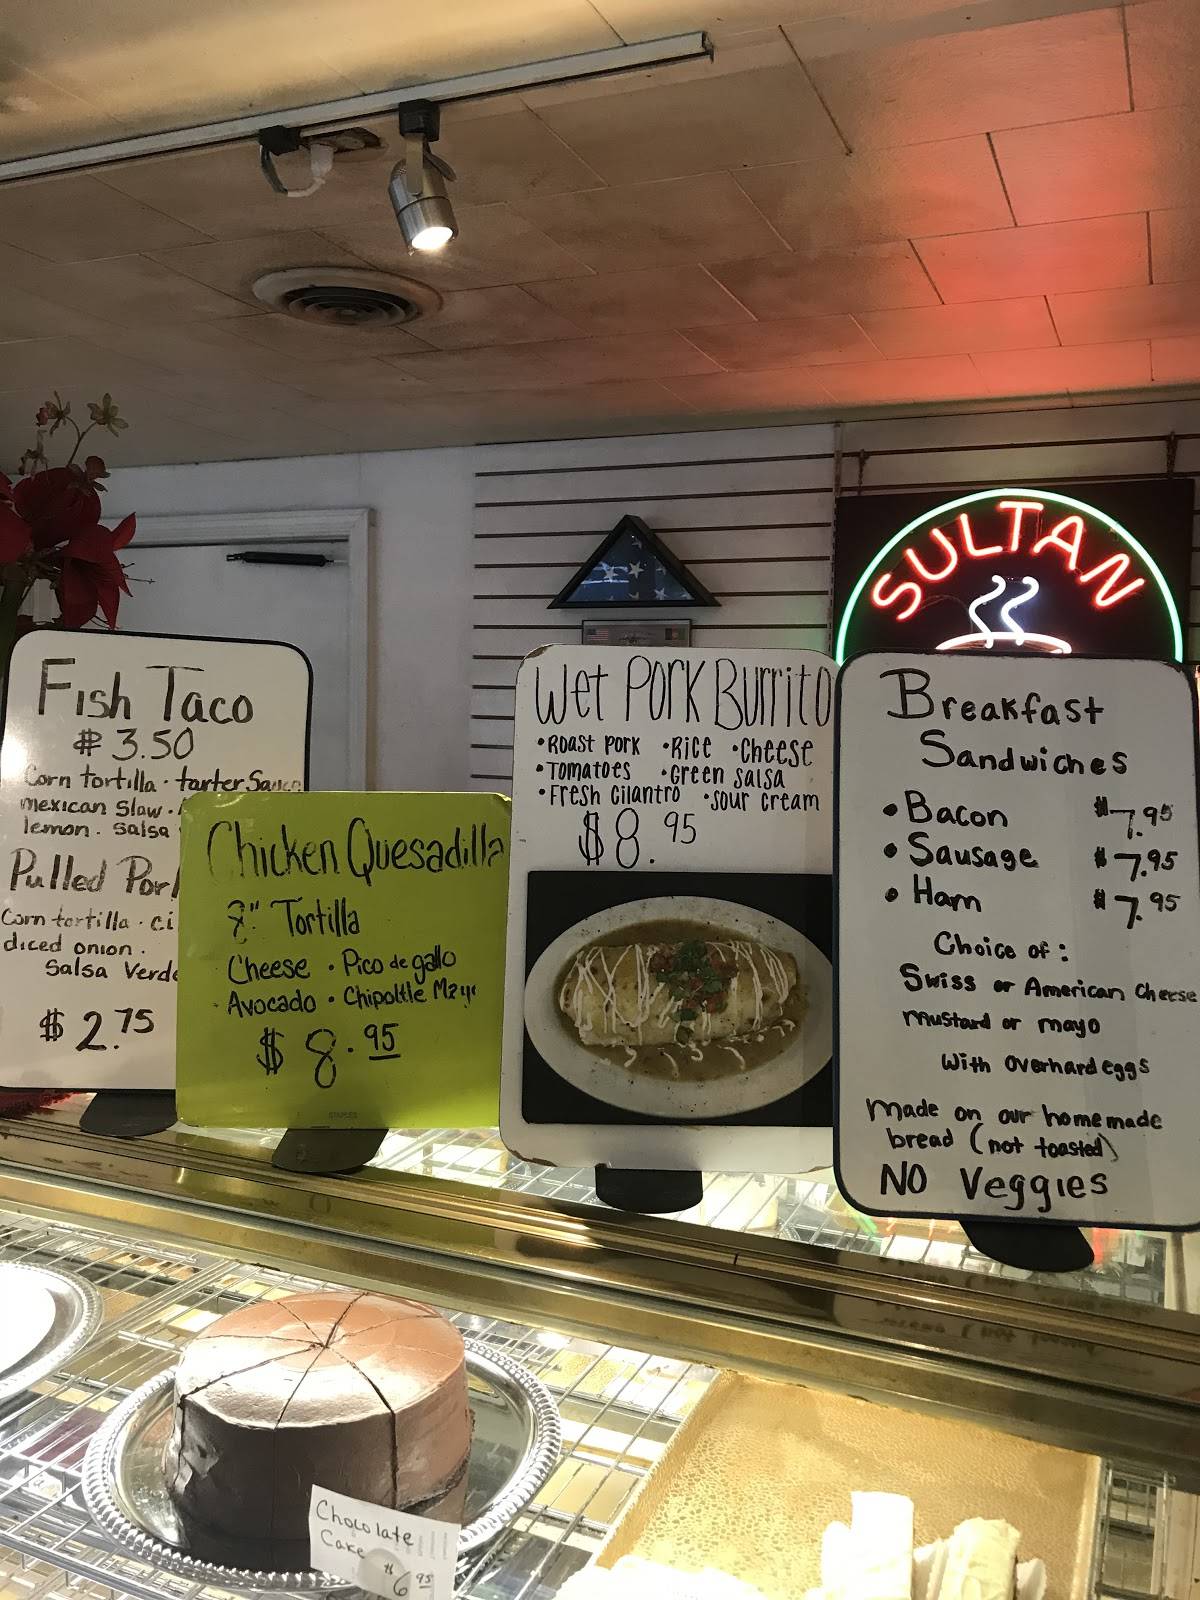 SULTAN
Fish Taco
$ 3.50
Corn tortilla · tarter Sauce
mexican Slaw ·
lemon . salsa
Pulled Por
Corn tortilla · ci
diced onion .
Salsa Verde
$ 2.75
Chicken Quesadilla
Tortilla
Cheese · Pico de gallo
Avocado · Chipoltle Mayo
$ 8.95
STAPLES
Wet Pork Burrito
• Roast Pork • Rice • Cheese
• Tomatoes • Green Salsa
• Fresh Cilantro • Sour Cream
$8.95
Breakfast
Sandwiches
• Bacon $7.95
• Sausage $7.95
• Ham $7.95
Choice of :
Swiss or American Cheese
mustard or mayo
With overhard eggs
Made on our homemade
bread (not toasted)
NO Veggies
Chocolate
Cake $6.95